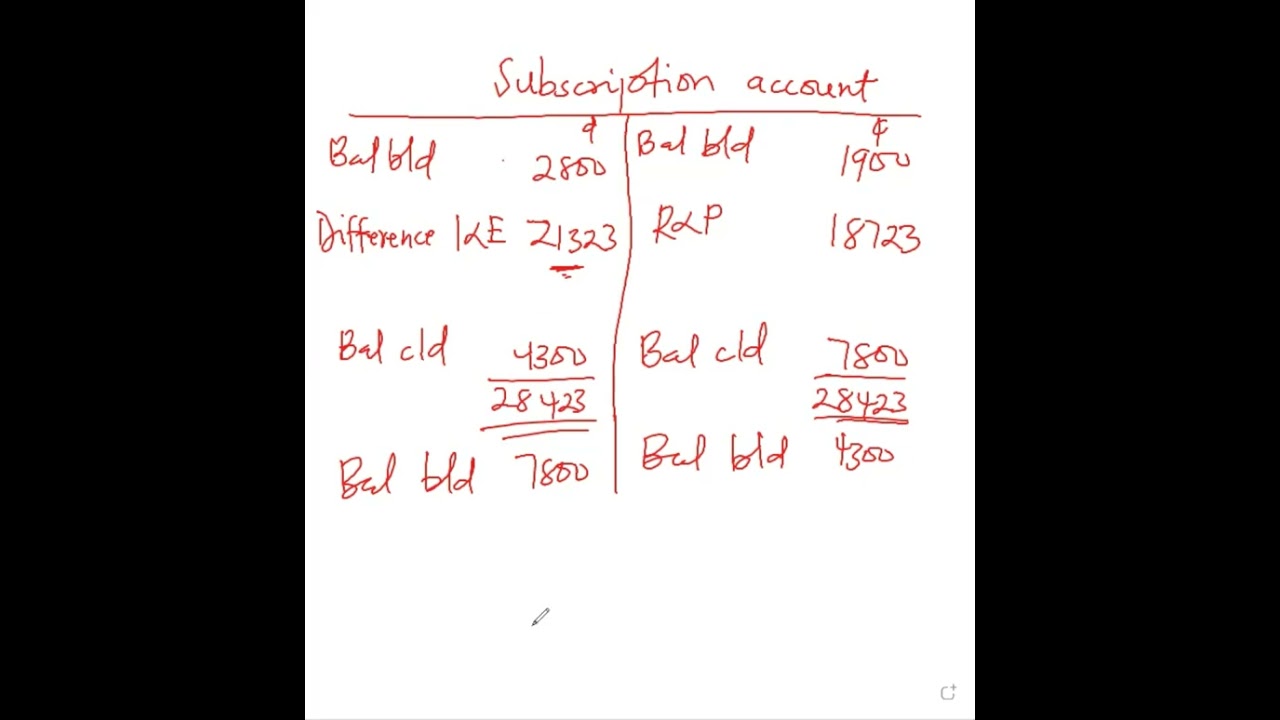 Subscription account
¢ ¢
Bal b/d 2800 Bal b/d 1900
Difference I&E 21323 R&P 18723
Bal c/d 4300 Bal c/d 7800
28423 28423
Bal b/d 7800 Bal b/d 4300